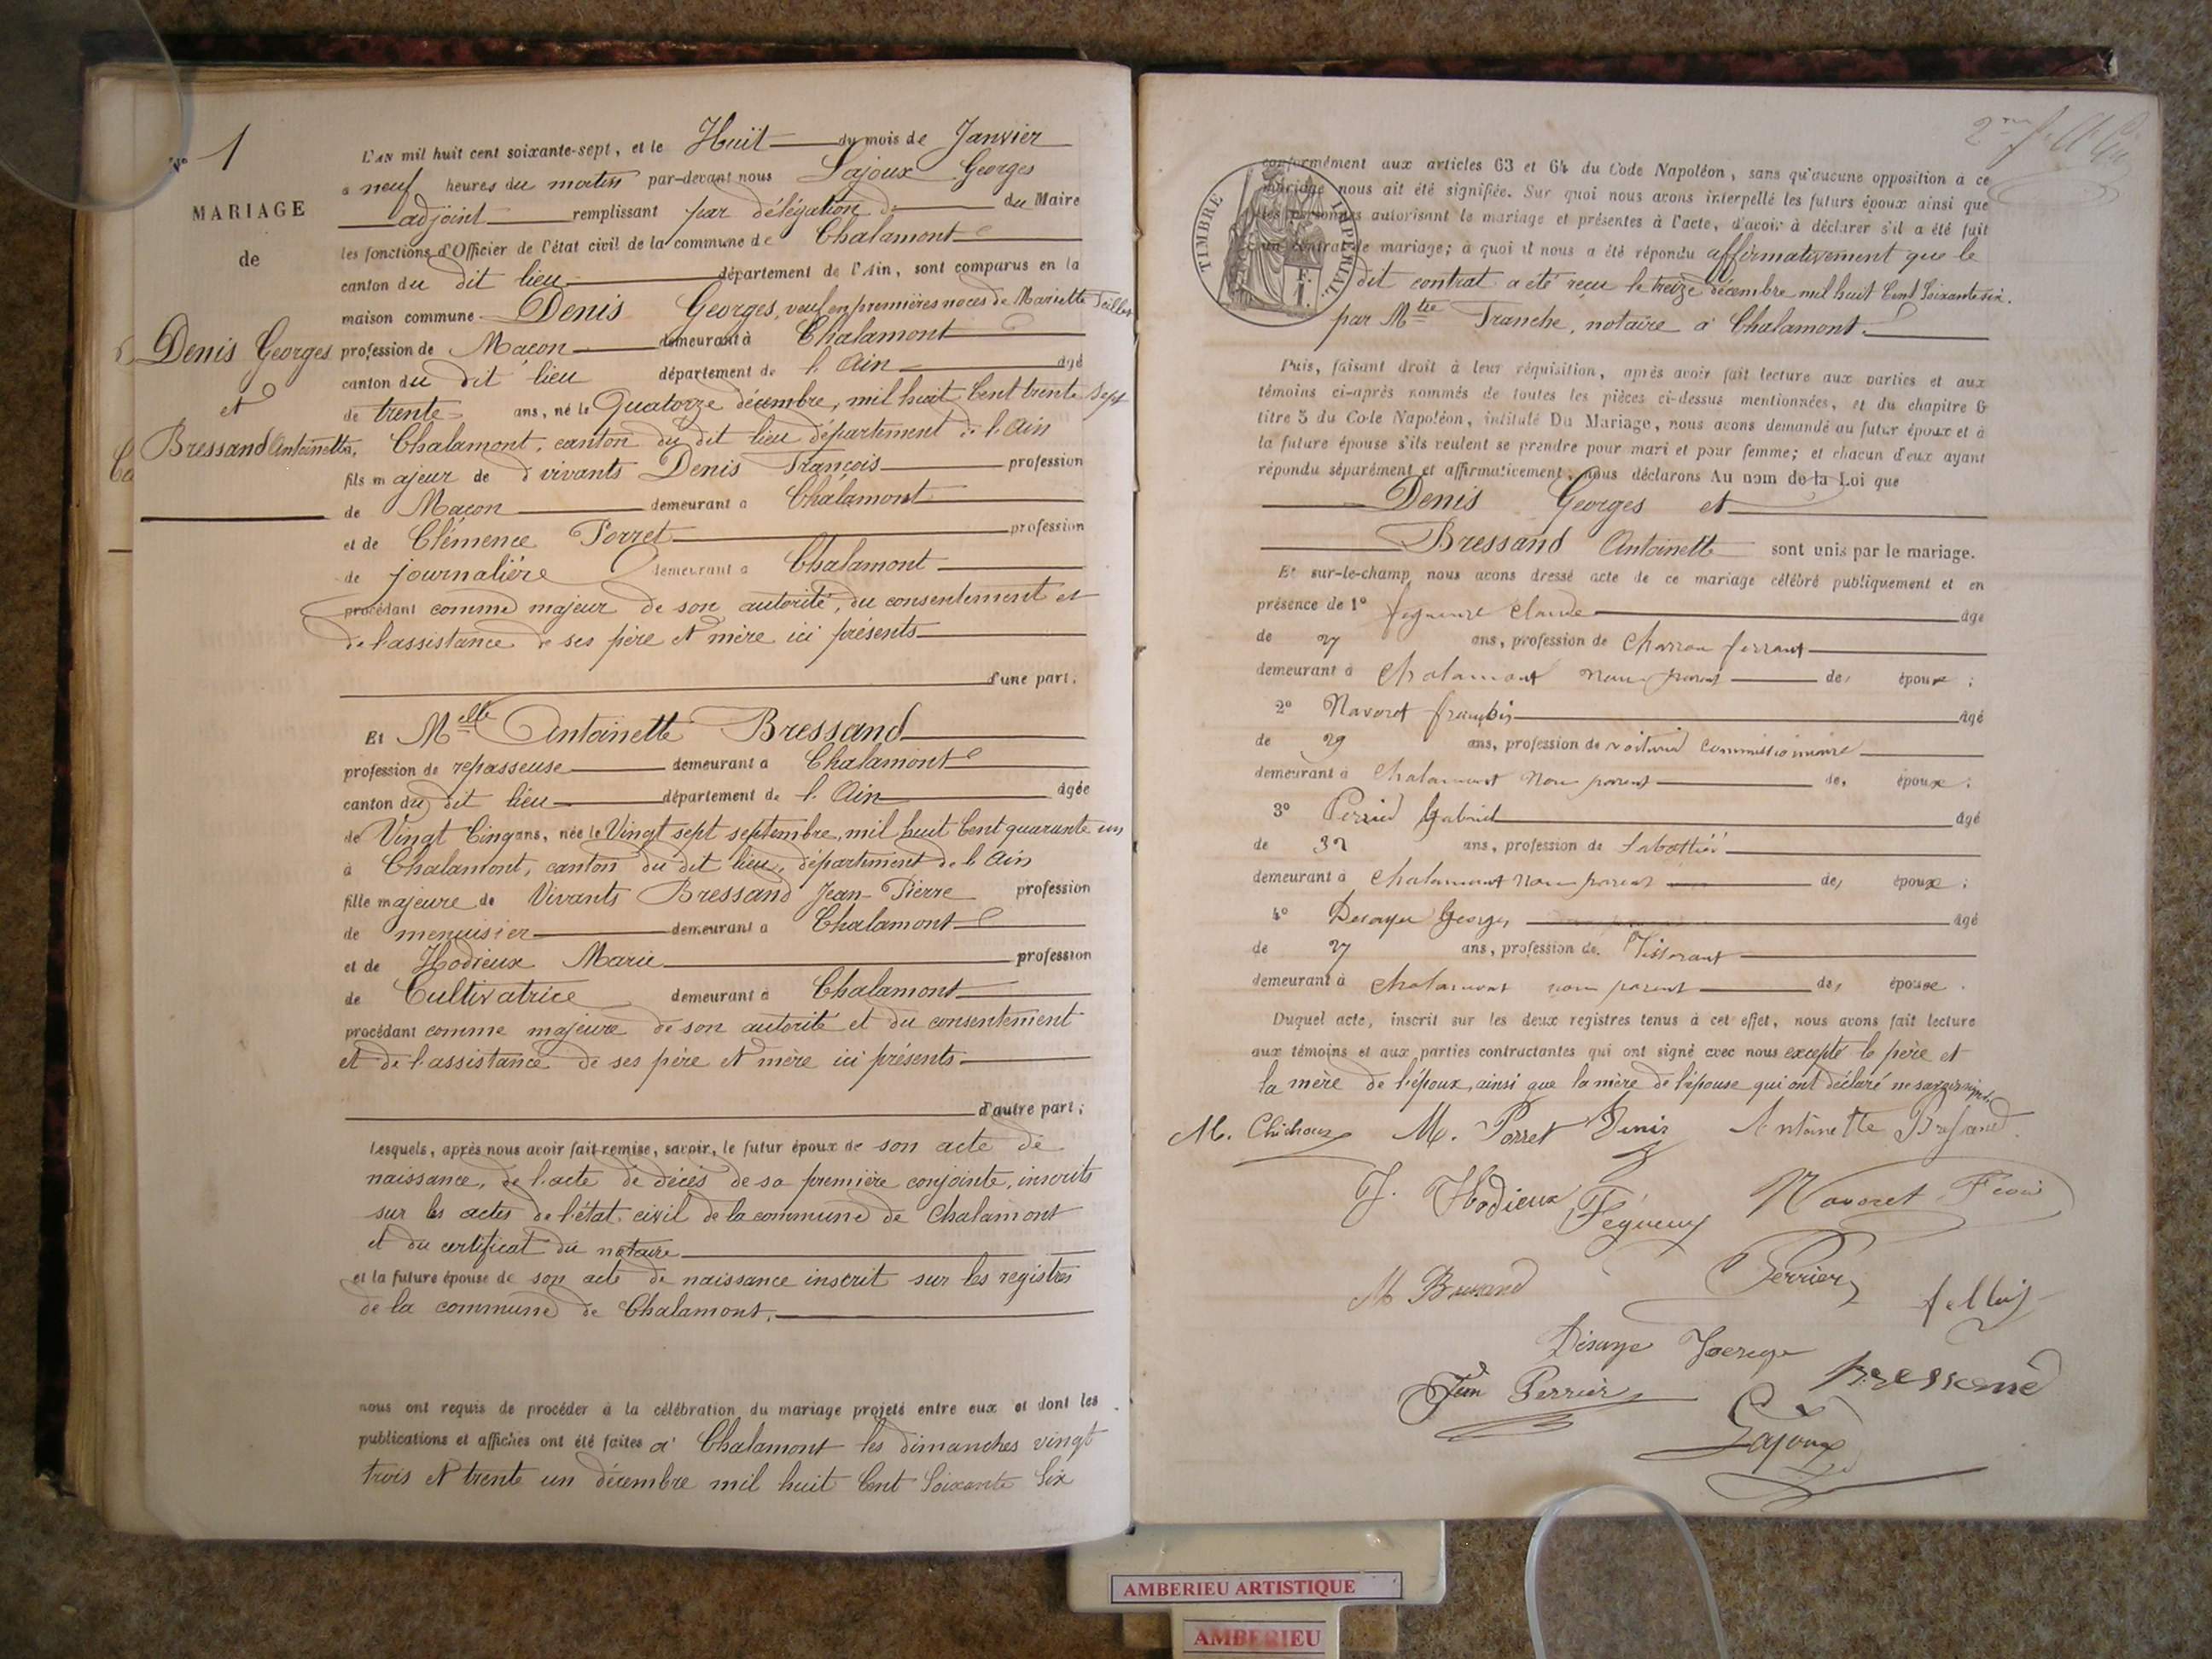 N° 1
MARIAGE
de
Denis Georges
et
Bressand Antoinette,
L'AN mil huit cent soixante-sept, et le Huit du mois de Janvier
a neuf heures du matin par-devant nous Lajoux Georges
adjoint remplissant par délégation du Maire
les fonctions d'Officier de l'état civil de la commune de Chalamont
canton du dit lieu département de l'Ain, sont comparus en la
maison commune Denis Georges, veuf en premières noces de Mariette
profession de Maçon demeurant à Chalamont
canton du dit lieu département de l'Ain âgé
de trente ans, né le Quatorze décembre, mil huit Cent trente Sept
Chalamont, canton du dit lieu département de l'Ain
fils majeur de vivants Denis François profession
de Maçon demeurant a Chalamont
et de Clémence Porret profession
de journalière demeurant a Chalamont
procédant comme majeur de son autorité, du consentement et
de l'assistance de ses père et mère ici présents
d'une part;
Et Melle Antoinette Bressand
profession de repasseuse demeurant a Chalamont
canton du dit lieu département de l'Ain âgée
de Vingt Cinq ans, née le Vingt sept septembre, mil huit Cent quarante un
à Chalamont, canton du dit lieu, département de l'Ain
fille majeure de Vivants Bressand Jean-Pierre profession
de menuisier demeurant a Chalamont
et de Hodieux Marie profession
de Cultivatrice demeurant à Chalamont
procédant comme majeure de son autorité et du consentement
et de l'assistance de ses père et mère ici présents
d'autre part;
Lesquels, après nous avoir fait remise, savoir, le futur époux de son acte de
naissance, de l'acte de décès de sa première conjointe, inscrits
sur les actes de l'état civil de la commune de Chalamont
et du certificat du notaire
et la future épouse de son acte de naissance inscrit sur les registres
de la commune de Chalamont.
nous ont requis de procéder à la célébration du mariage projeté entre eux et dont les
publications et affiches ont été faites à Chalamont les dimanches vingt
trois et trente un décembre mil huit Cent Soixante Six
TIMBRE IMPÉRIAL
conformément aux articles 63 et 64 du Code Napoléon, sans qu'aucune opposition à ce
mariage nous ait été signifiée. Sur quoi nous avons interpellé les futurs époux ainsi que
les personnes autorisant le mariage et présentes à l'acte, d'avoir à déclarer s'il a été fait
un contrat de mariage; à quoi il nous a été répondu affirmativement que le
dit contrat a été reçu le treize décembre mil huit Cent Soixante six.
par Mtre Tranche, notaire à Chalamont.
Puis, faisant droit à leur réquisition, après avoir fait lecture aux parties et aux
témoins ci-après nommés de toutes les pièces ci-dessus mentionnées, et du chapitre 6
titre 5 du Code Napoléon, intitulé Du Mariage, nous avons demandé au futur époux et à
la future épouse s'ils veulent se prendre pour mari et pour femme; et chacun d'eux ayant
répondu séparément et affirmativement, nous déclarons Au nom de la Loi que
Denis Georges et
Bressand Antoinette sont unis par le mariage.
Et sur-le-champ nous avons dressé acte de ce mariage célébré publiquement et en
présence de 1° Claude âgé
de 27 ans, profession de Charron ferrant
demeurant à Chalamont non parent des époux;
2° Navoret françois âgé
de 29 ans, profession de voiturier commissionnaire
demeurant à Chalamont non parent des époux;
3° Perrier Gabriel âgé
de 32 ans, profession de Sabottier
demeurant à Chalamont non parent des époux;
4° Desaye Georges âgé
de 27 ans, profession de Tisserant
demeurant à Chalamont non parent des époux.
Duquel acte, inscrit sur les deux registres tenus à cet effet, nous avons fait lecture
aux témoins et aux parties contractantes qui ont signé avec nous excepté le père et
la mère de l'époux, ainsi que la mère de l'épouse qui ont déclaré ne savoir signer
M. Porret Denis Antoinette Bressand
J. Hodieux Navoret
M Bressand Perrier
Desaye George
Jean Perrier Bressand
Lajoux
AMBERIEU ARTISTIQUE
AMBERIEU